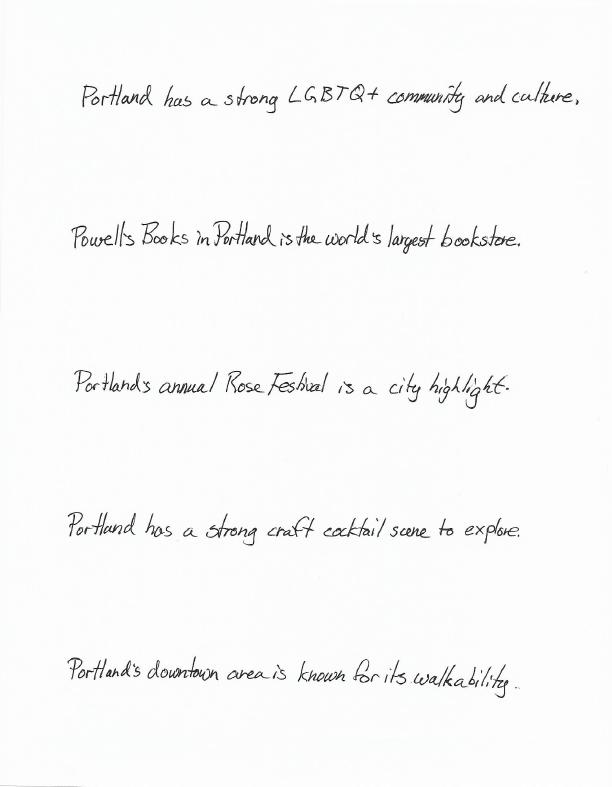 Portland has a strong LGBTQ+ community and culture.
Powell's Books in Portland is the world's largest bookstore.
Portland's annual Rose Festival is a city highlight.
Portland has a strong craft cocktail scene to explore.
Portland's downtown area is known for its walkability.